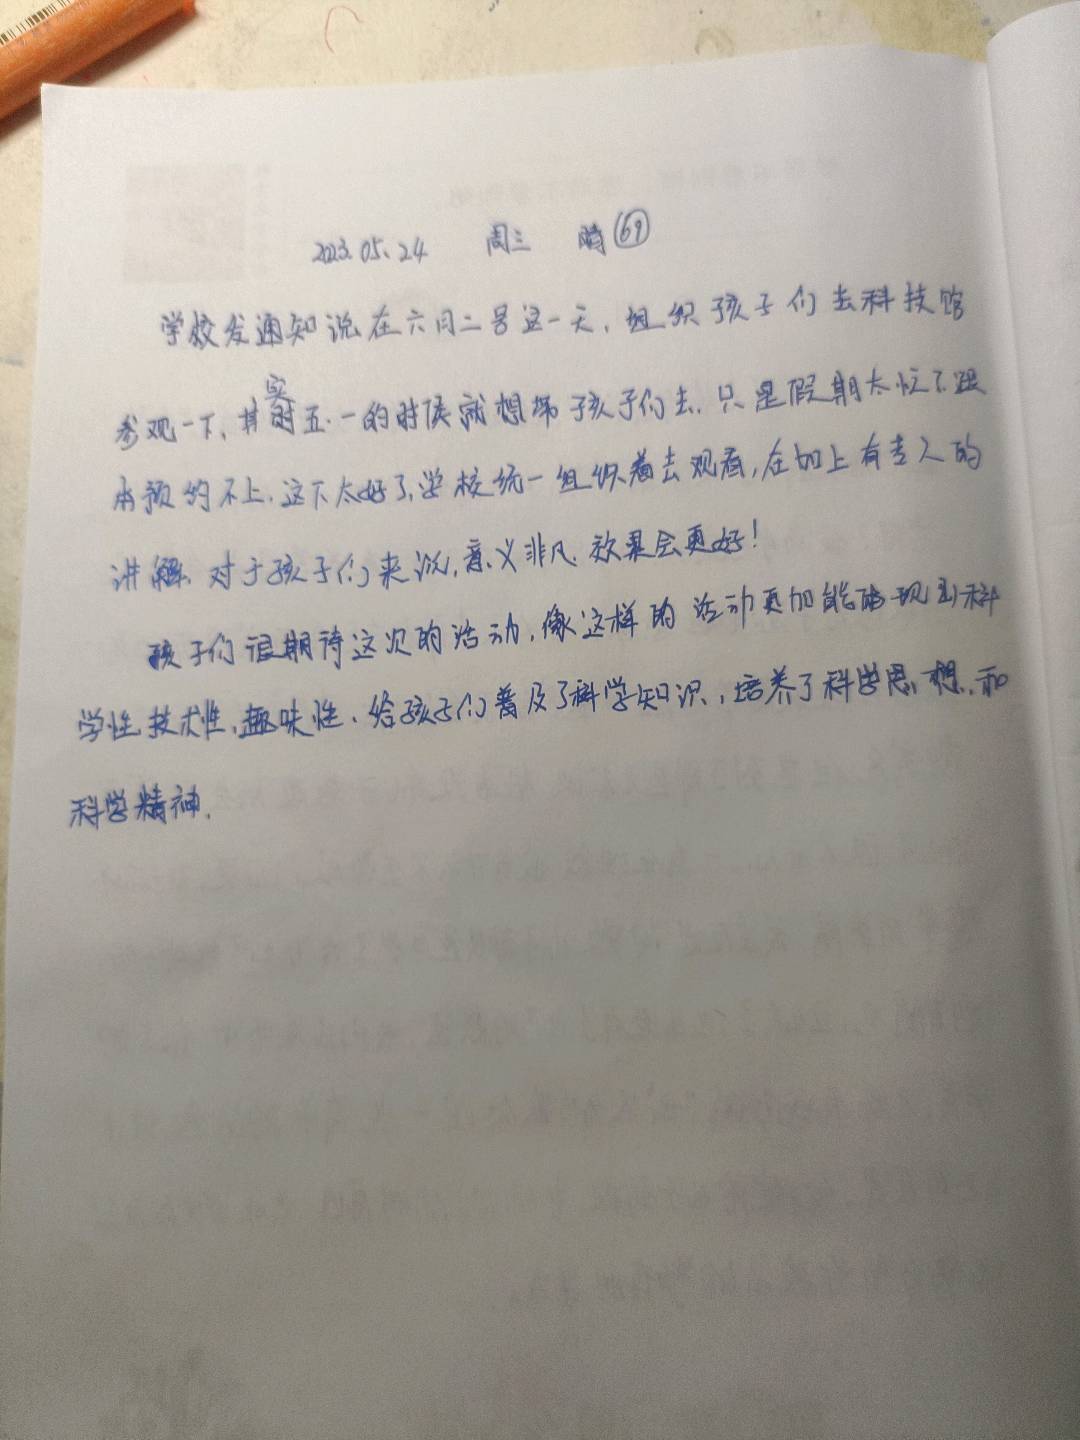 2023.05.24 周三 晴 69
学校发通知说在六月二号这一天,组织孩子们去科技馆
参观一下,其实时五.一的时候就想带孩子们去.只是假期太忙了.跟
本预约不上.这下太好了,学校统一组织着去观看,在加上有专人的
讲解、对于孩子们来说,意义非凡.效果会更好!
孩子们很期待这次的活动,像这样的活动更加能够现出科
学性,技术性,趣味性.给孩子们普及了科学知识,培养了科学思想,和
科学精神.